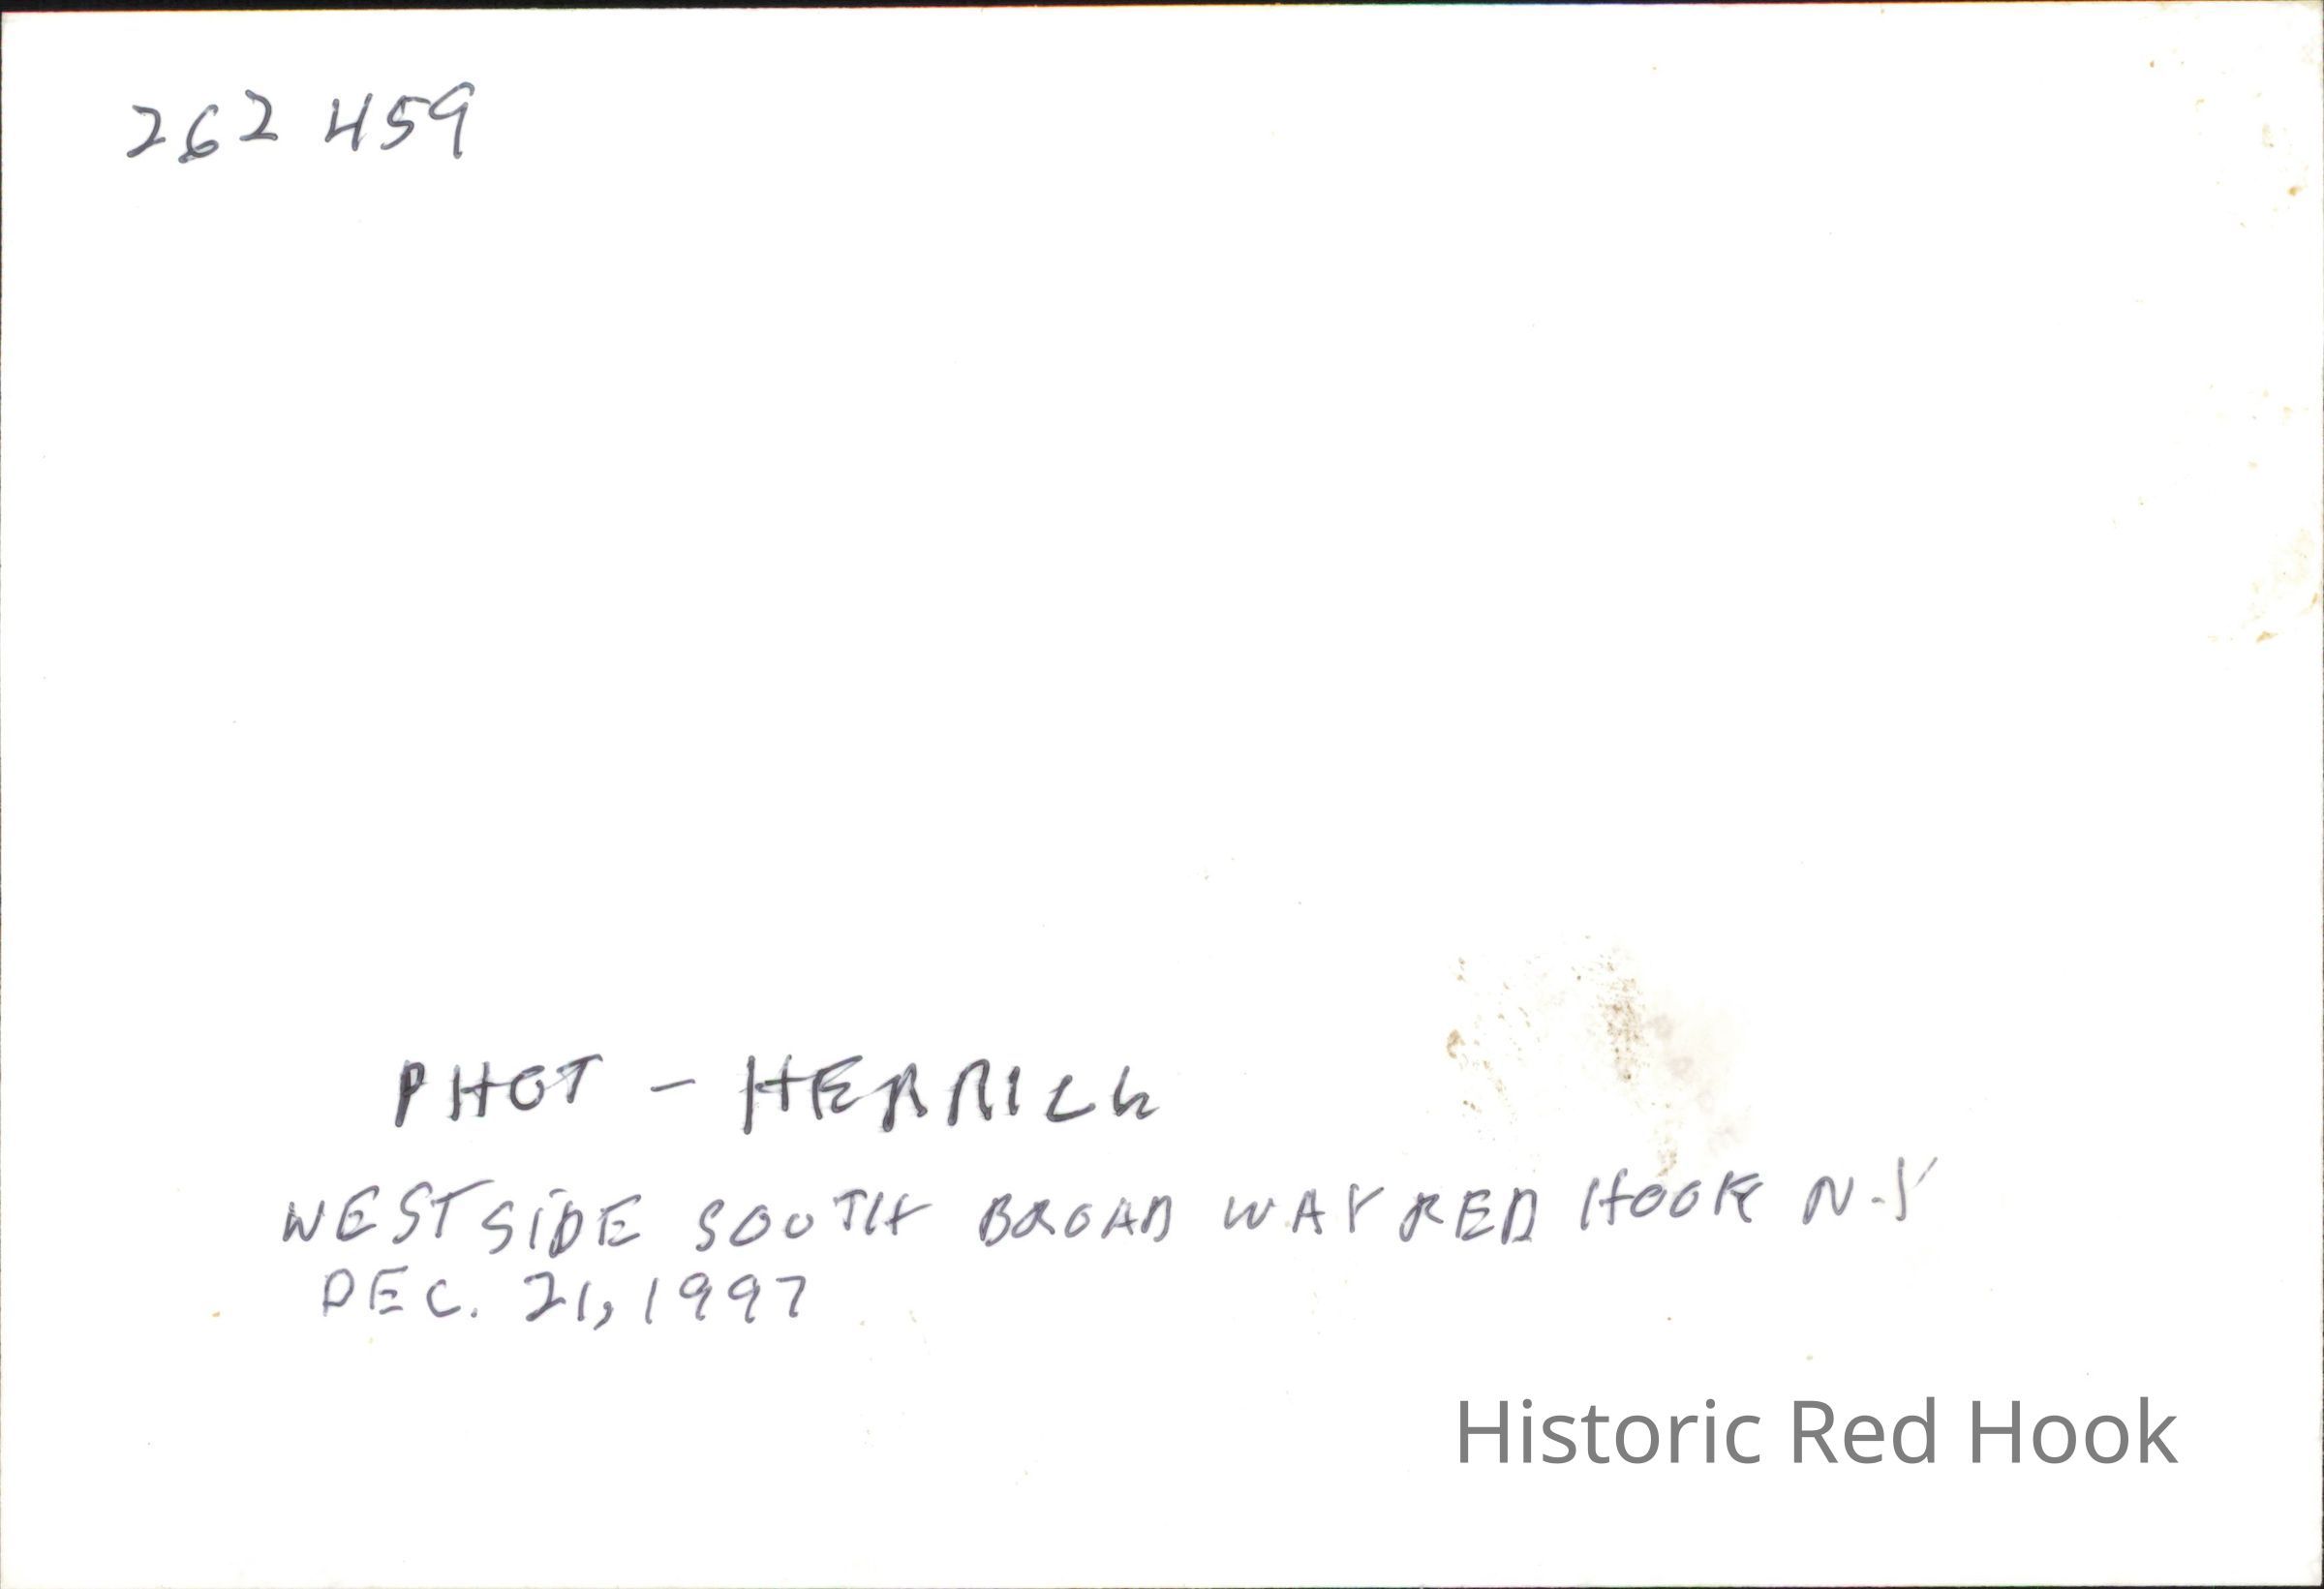 262 459
PHOT - HERRICK
WEST SIDE SOUTH BROAD WAY RED HOOK N.Y
DEC. 21, 1997
Historic Red Hook